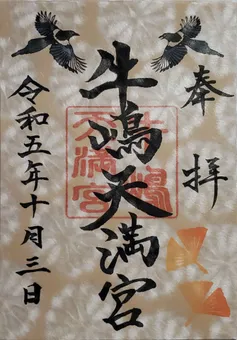 奉拝
牛嶋天満宮
令和五年十月三日
牛嶋
天満宮